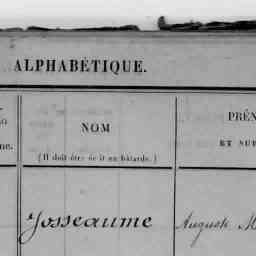 ALPHABÉTIQUE.
NOM
(Il doit être écrit en bâtarde.)
PRÉN
ET SUR
ne.
Josseaume
Auguste M